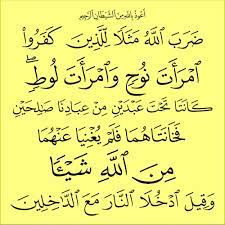 أعوذ بالله من الشيطان الرجيم
ضَرَبَ ٱللَّهُ مَثَلًا لِّلَّذِينَ كَفَرُوا۟
ٱمْرَأَتَ نُوحٍ وَٱمْرَأَتَ لُوطٍ ۖ
كَانَتَا تَحْتَ عَبْدَيْنِ مِنْ عِبَادِنَا صَٰلِحَيْنِ
فَخَانَتَاهُمَا فَلَمْ يُغْنِيَا عَنْهُمَا
مِنَ ٱللَّهِ شَيْـًٔا
وَقِيلَ ٱدْخُلَا ٱلنَّارَ مَعَ ٱلدَّٰخِلِينَ